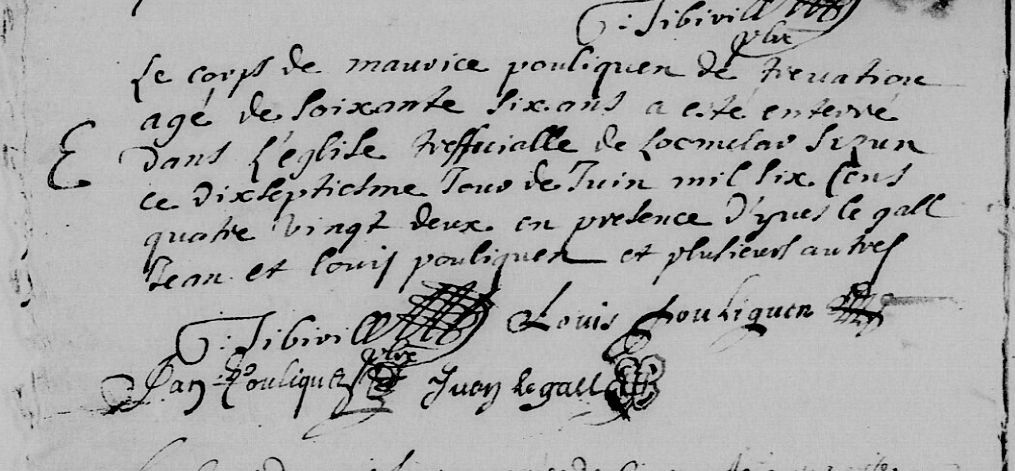 G: Tibivill
pbre
Le corps de mauvice pouliquen de trevation
agé de soixante six ans a esté enterré
dans l'église treffvialle de Locmelar sizun
ce dixseptiesme Jour de Juin mil six cens
quatre vingt deux en presence d'yves le gall
Jean et louis pouliquen et plusieurs autres
G: Tibivill Louis pouliquen
pbre
Jan Pouliquen Yuen le gall